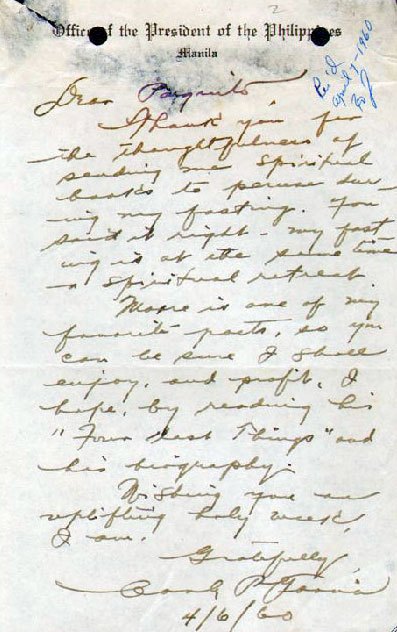 2
Office of the President of the Philippines
Manila
Rec'd
April 7-1960
Dear Paquito,
Thank you for
the thoughtfulness of
sending me spiritual
books to peruse dur-
ing my fasting. You
said it right - my fast
ing is at the same time
a spiritual retreat
More is one of my
favorite poets, so you
can be sure I shall
enjoy, and profit, I
hope, by reading his
"Four Last Things" and
his biography.
Wishing you an
uplifting holy week,
I am.
Gratefully,
Carlos P. Garcia
4/6/60